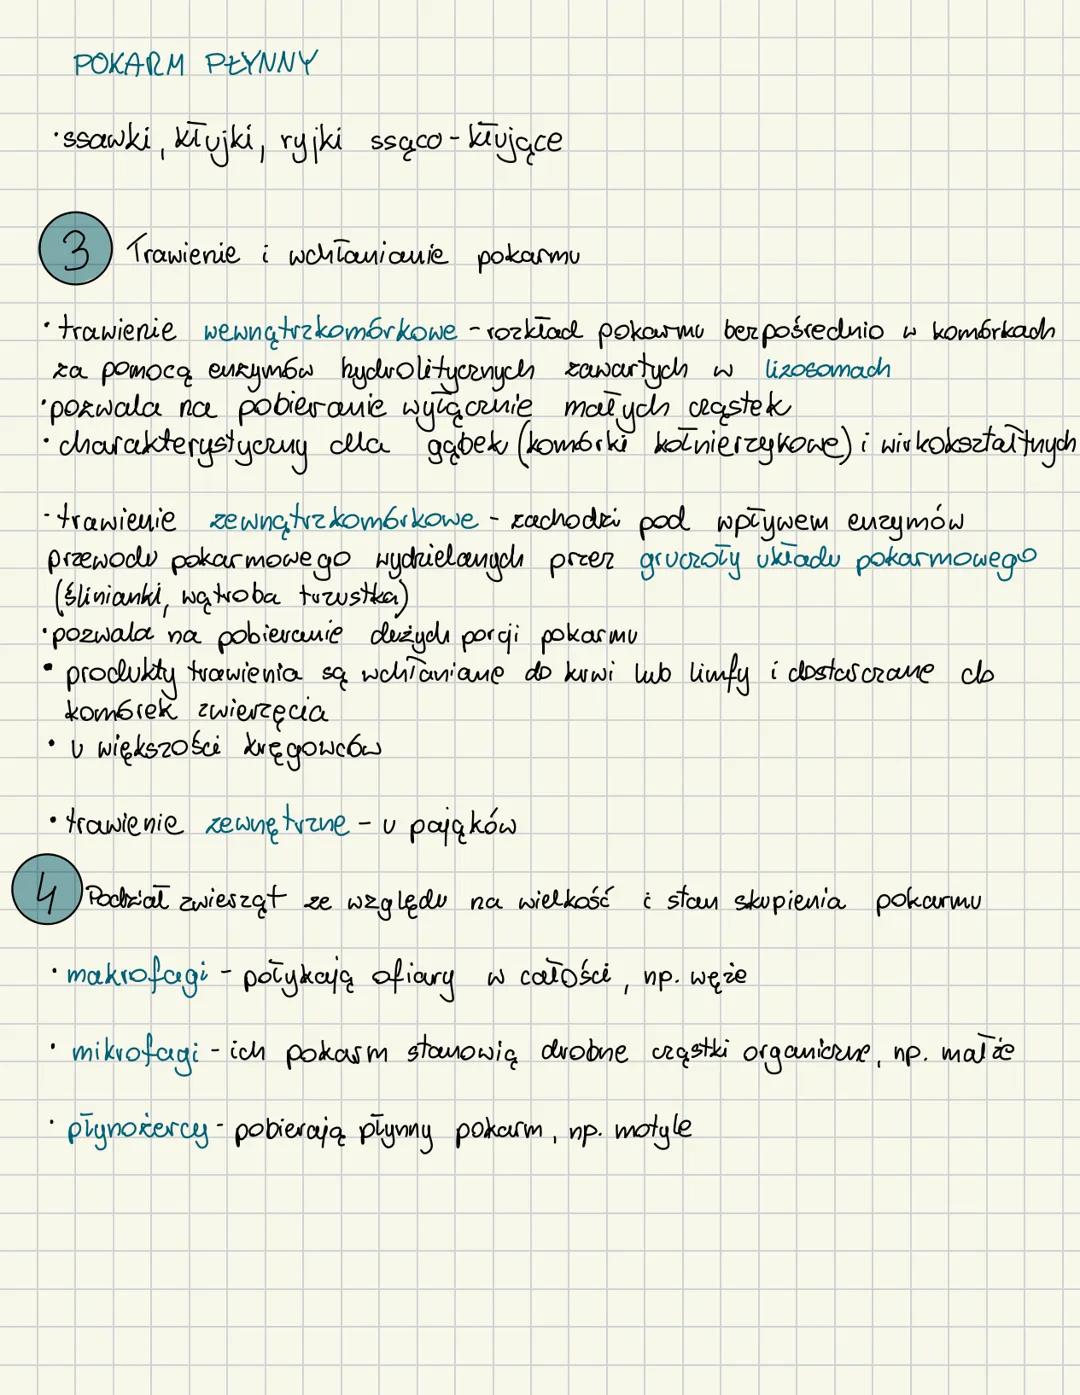 POKARM PŁYNNY
· ssawki, kłujki, ryjki ssąco-kłujące
3 Trawienie i wchłanianie pokarmu
· trawienie wewnątrzkomórkowe - rozkład pokarmu bezpośrednio w komórkach
za pomocą enzymów hydrolitycznych zawartych w lizosomach
· pozwala na pobieranie wyłącznie małych cząstek
· charakterystyczny dla gąbek (komórki kołnierzykowe) i wirkokształtnych
- trawienie zewnątrzkomórkowe - zachodzi pod wpływem enzymów
przewodu pokarmowego wydzielanych przez gruczoły układu pokarmowego
(ślinianki, wątroba trzustka)
· pozwala na pobieranie dużych porcji pokarmu
· produkty trawienia są wchłaniane do krwi lub limfy i dostarczane do
komórek zwierzęcia
· u większości kręgowców
· trawienie zewnętrzne - u pająków
4 Podział zwierząt ze względu na wielkość i stan skupienia pokarmu
· makrofagi - połykają ofiary w całości, np. węże
· mikrofagi - ich pokarm stanowią drobne cząstki organiczne, np. małże
· płynożercy - pobierają płynny pokarm, np. motyle